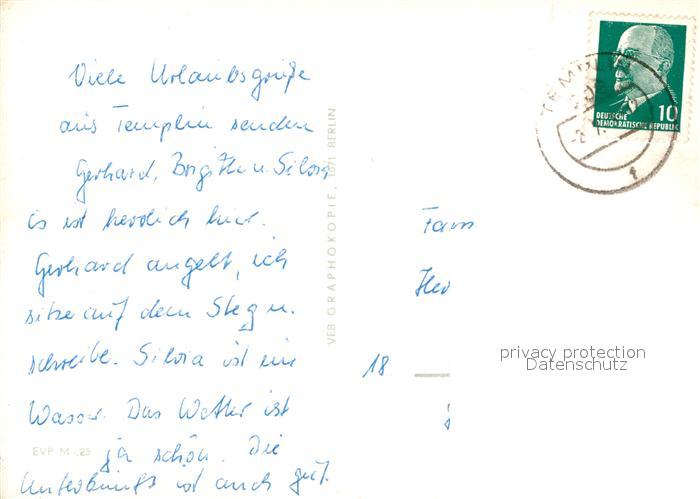 Viele Urlaubsgrüße
aus Templin senden
Gerhard, Brigitte u. Silvia
Es ist herrlich hier.
Gerhard angelt, ich
sitze auf dem Steg u.
schreibe. Silvia ist im
Wasser. Das Wetter ist
ja schön. Die
Unterkunft ist auch gut.
EVP M -.25
VEB GRAPHOKOPIE, 1071 BERLIN
TEMPLIN
10
DEUTSCHE
DEMOKRATISCHE REPUBLIK
Fam
Her
18
privacy protection
Datenschutz